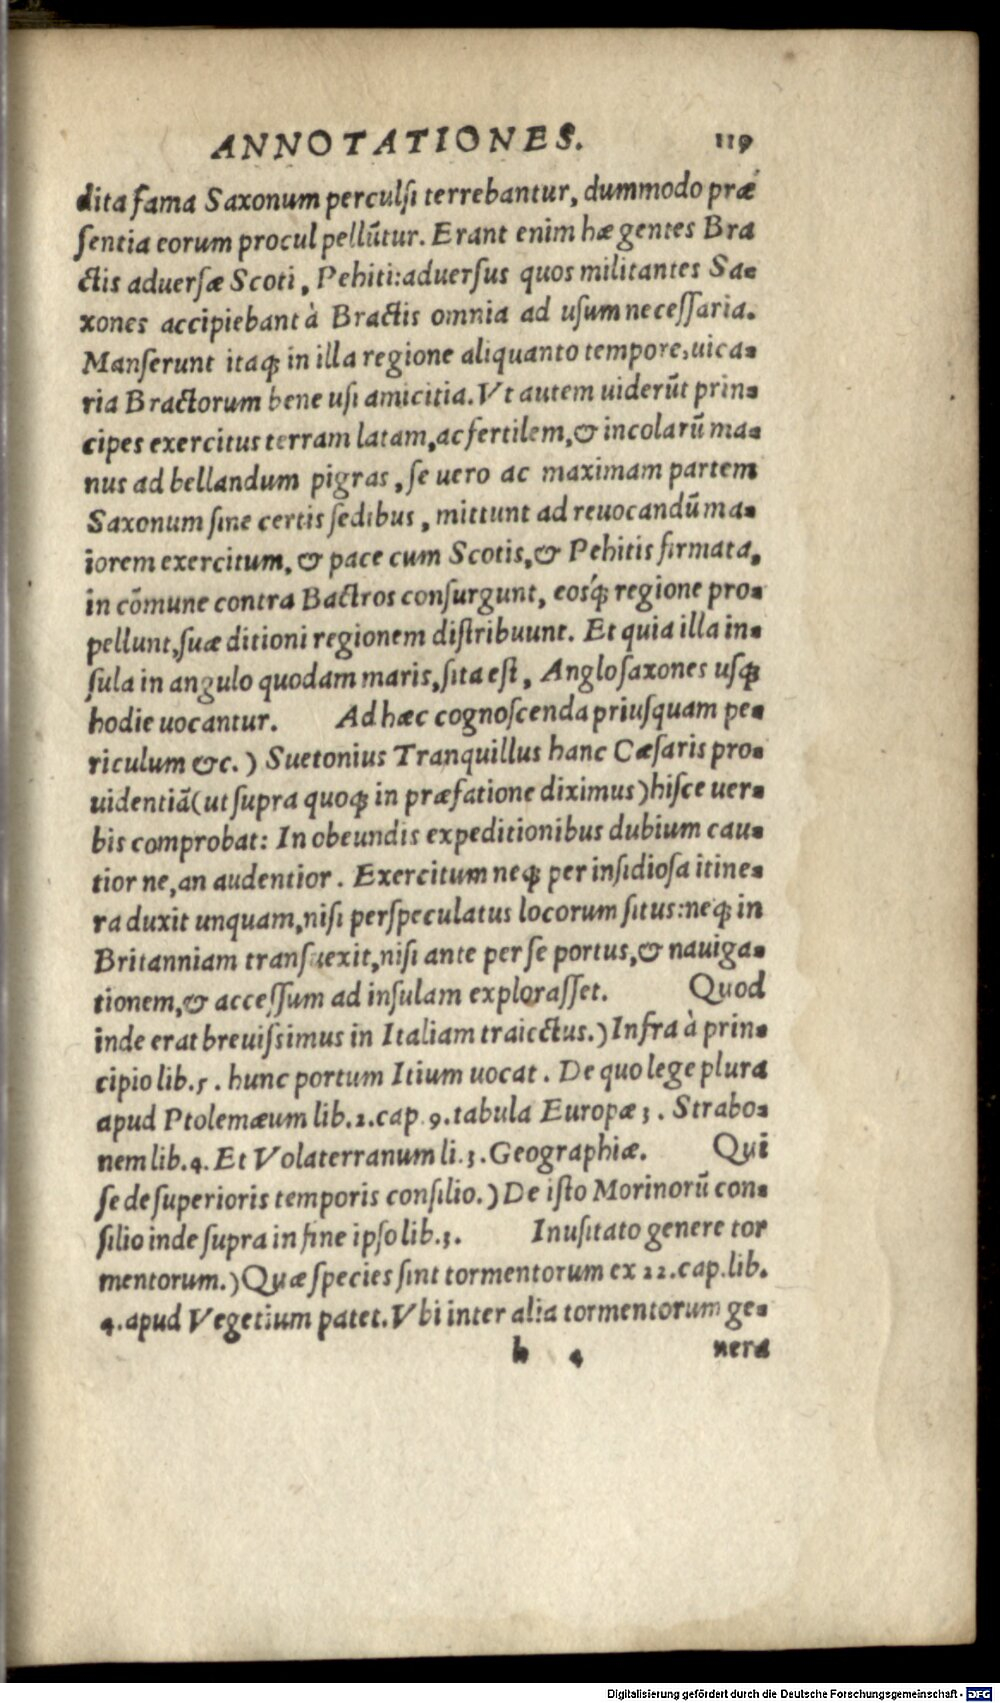 ANNOTATIONES. 119
dita fama Saxonum perculſi terrebantur, dummodo præ
ſentia eorum procul pellũtur. Erant enim hæ gentes Bra
ctis aduerſæ Scoti, Pehiti: aduerſus quos militantes Sa-
xones accipiebant à Bractis omnia ad uſum neceſſaria.
Manſerunt itaq; in illa regione aliquanto tempore, uica-
ria Bractorum bene uſi amicitia. Vt autem uiderũt prin-
cipes exercitus terram latam, ac fertilem, & incolarũ ma-
nus ad bellandum pigras, ſe uero ac maximam partem
Saxonum ſine certis ſedibus, mittunt ad reuocandũ ma-
iorem exercitum, & pace cum Scotis, & Pehitis firmata,
in cõmune contra Bactros conſurgunt, eosq́; regione pro-
pellunt, ſuæ ditioni regionem diſtribuunt. Et quia illa in-
ſula in angulo quodam maris, ſita eſt, Angloſaxones uſq;
hodie uocantur. Ad hæc cognoſcenda priuſquam pe-
riculum &c.) Suetonius Tranquillus hanc Cæſaris pro-
uidentiã (ut ſupra quoq; in præfatione diximus) hiſce uer-
bis comprobat: In obeundis expeditionibus dubium cau-
tior ne, an audentior. Exercitum neq; per inſidioſa itine-
ra duxit unquam, niſi perſpeculatus locorum ſitus: neq; in
Britanniam transuexit, niſi ante per ſe portus, & nauiga-
tionem, & acceſſum ad inſulam exploraſſet. Quod
inde erat breuiſsimus in Italiam traiectus.) Infra à prin-
cipio lib. 5. hunc portum Itium uocat. De quo lege plura
apud Ptolemæum lib. 2. cap. 9. tabula Europæ 3. Strabo-
nem lib. 4. Et Volaterranum li. 3. Geographiæ. Qui
ſe de ſuperioris temporis conſilio.) De iſto Morinorũ con-
ſilio inde ſupra in fine ipſo lib. 3. Inuſitato genere tor
mentorum.) Quæ ſpecies ſint tormentorum ex 22. cap. lib.
4. apud Vegetium patet. Vbi inter alia tormentorum ge-
h 4 nera
Digitalisierung gefördert durch die Deutsche Forschungsgemeinschaft - DFG